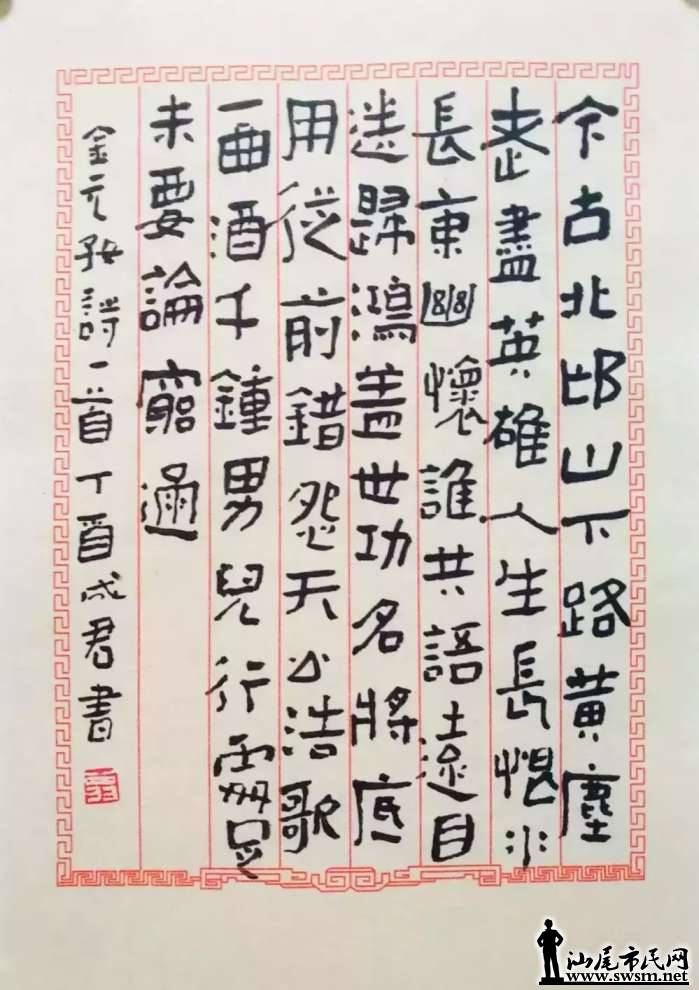 今古北邙山下路黃塵
老盡英雄人生長恨水
長東幽懷誰共語遠目
送歸鴻盖世功名將底
用從前錯怨天公浩歌
一曲酒千鍾男兒行處是
未要論窮通
金元好詩一首丁酉成君書
汕尾市民网
www.swsm.net